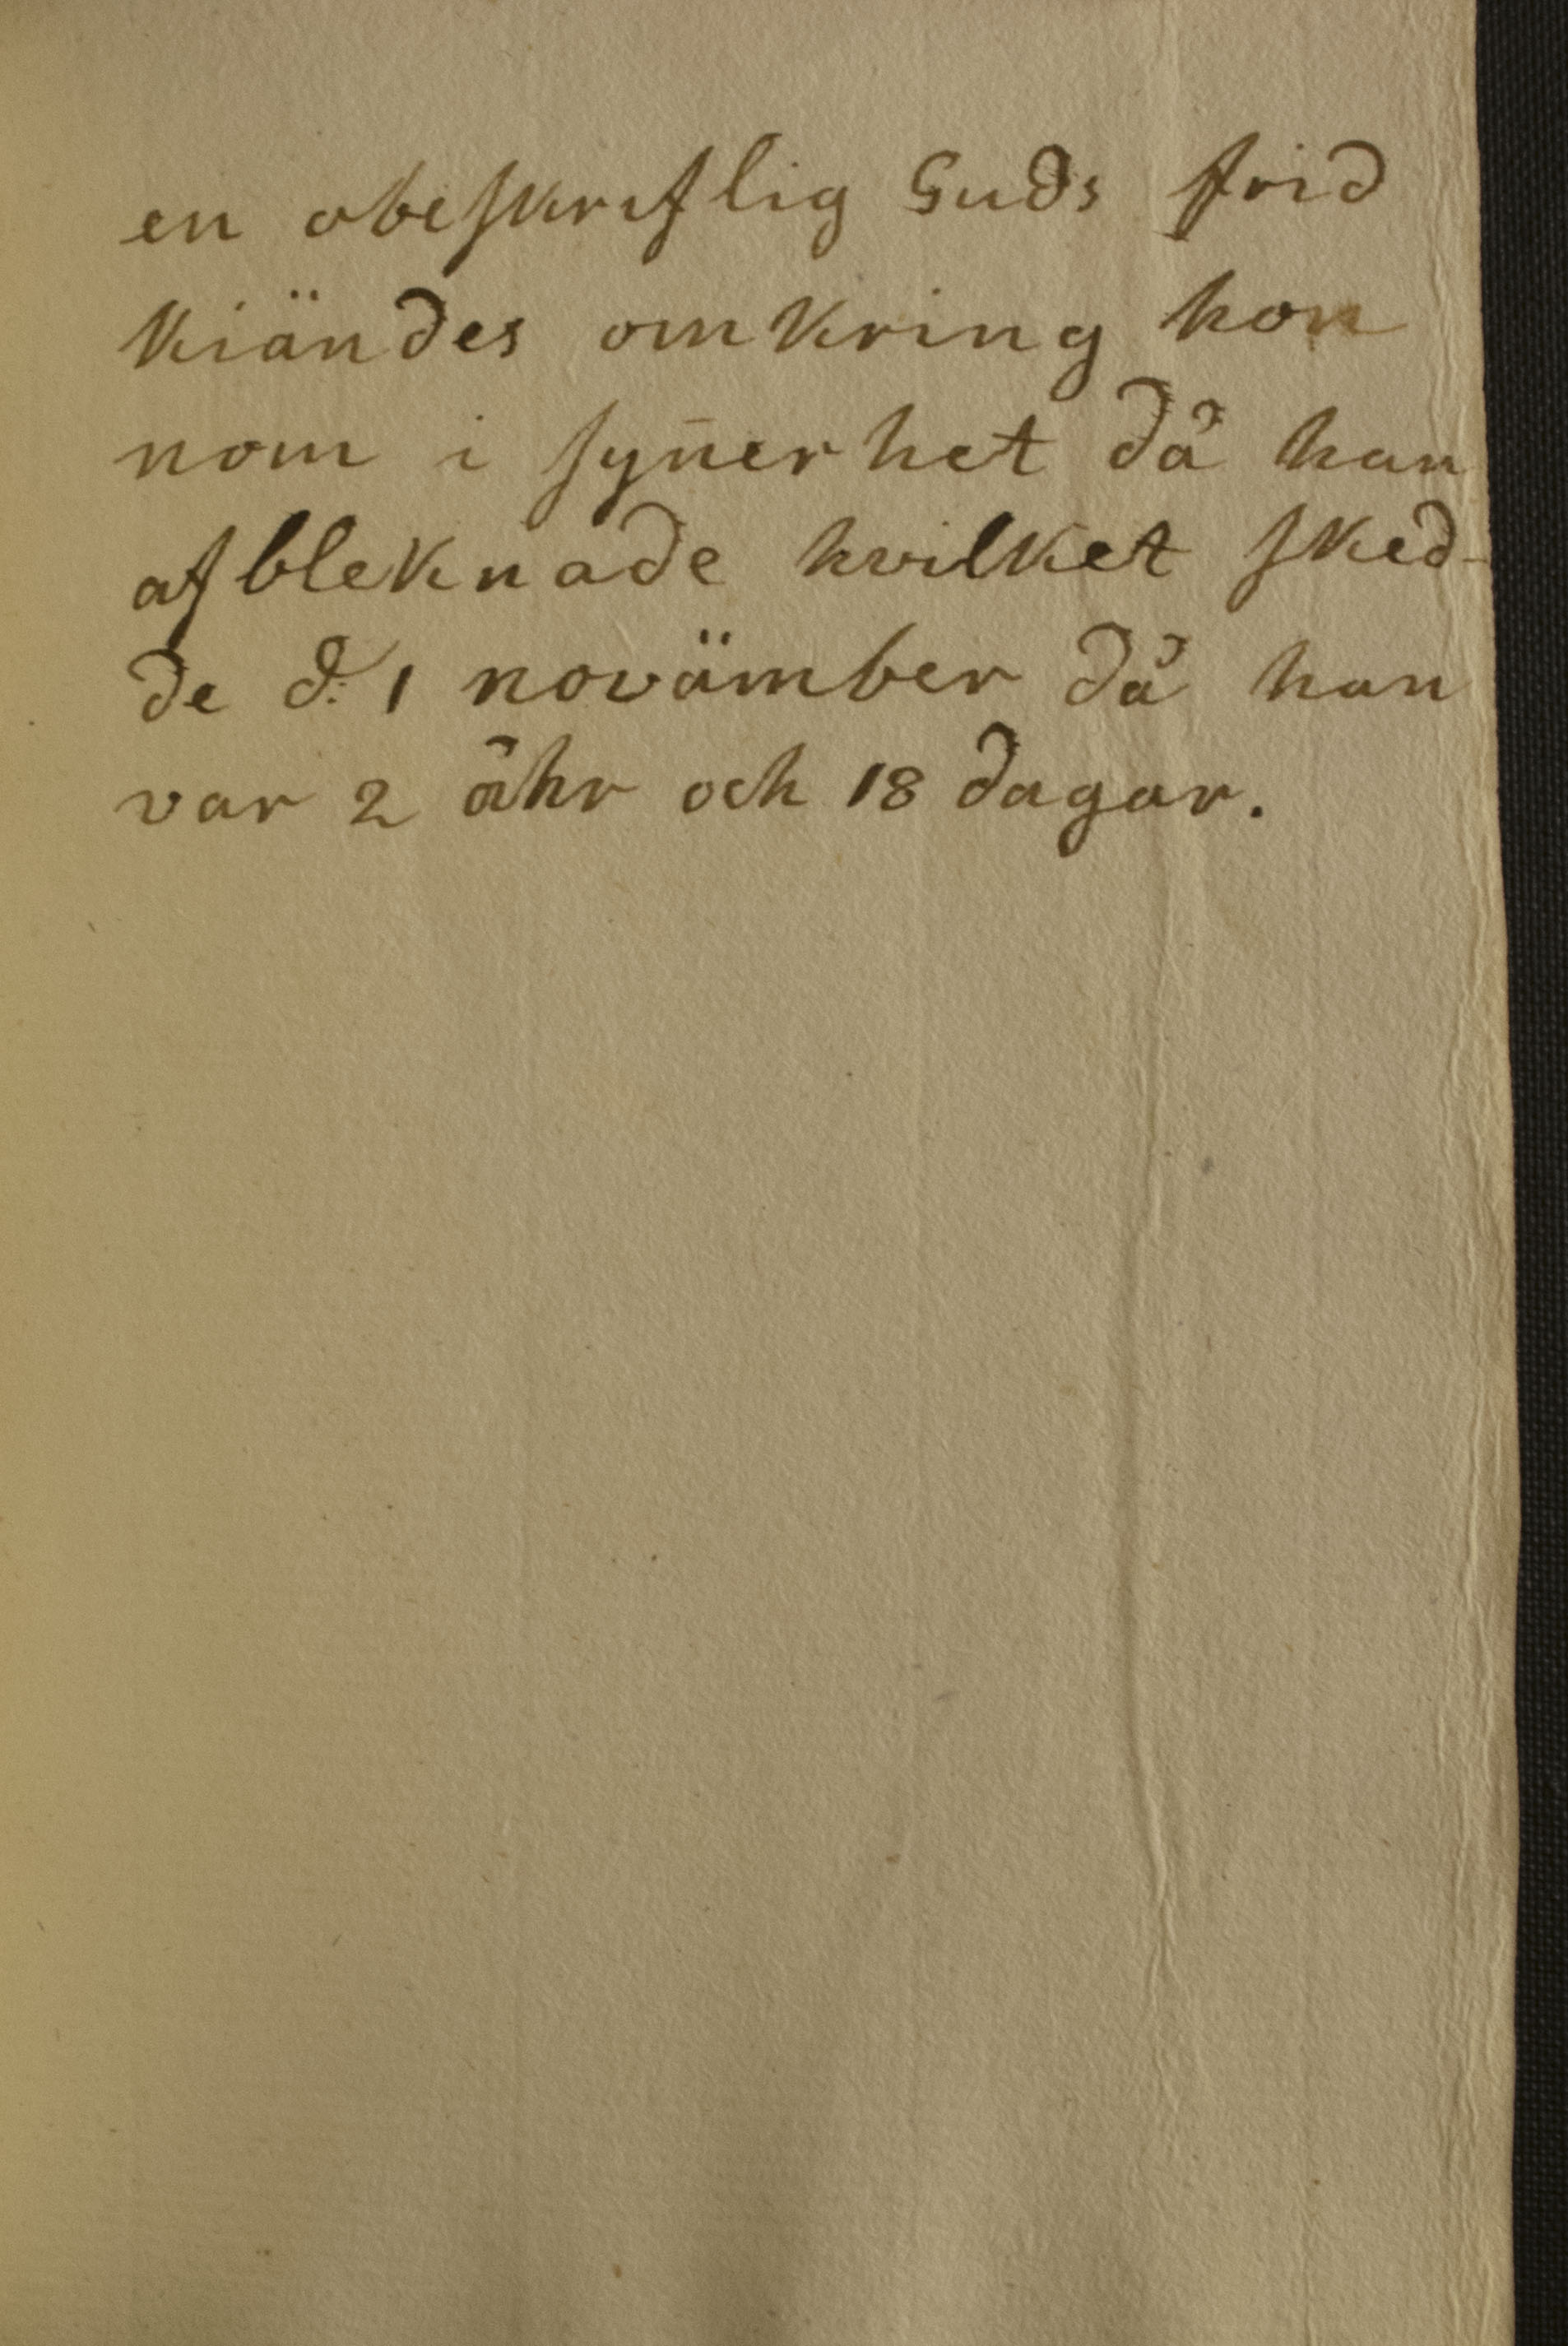 en obeskriflig Guds frid
kiändes omkring hon
nom i syn̄erhet då han
afbleknade hvilket sked-
de d: 1 novämber då han
var 2 åhr och 18 dagar.